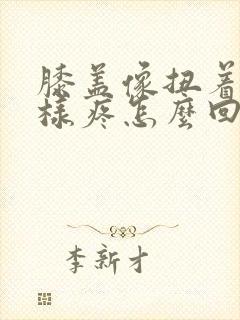 膝盖像扭着
样疼怎麼回
李新才